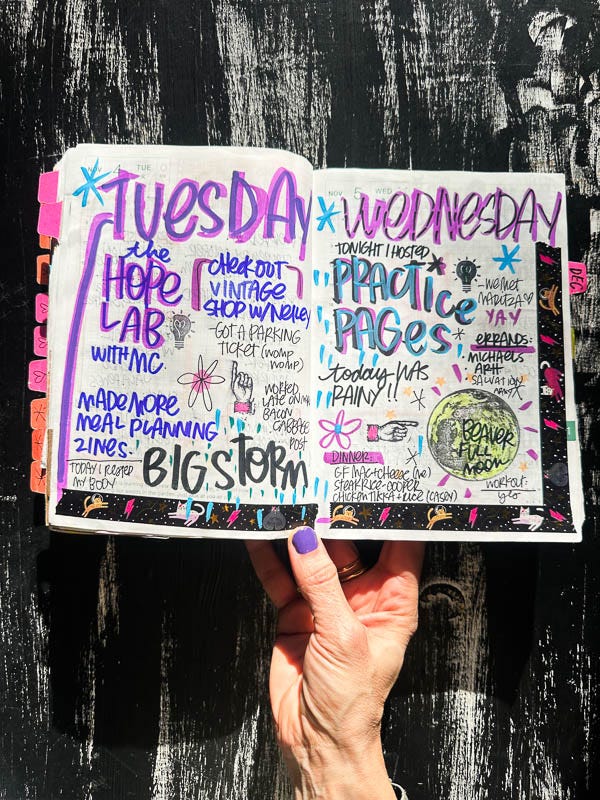 NOV 4 TUE
TUESDAY
the
HOPE
LAB
WITH MC.
MADE MORE
MEAL PLANNING
ZINES.
TODAY I RESTED
MY BODY
CHECK OUT
VINTAGE
SHOP W/
-GOT A PARKING
TICKET (WOMP
WOMP)
WORKED
LATE ON
BACON
CABBAGE
POST
BIG STORM
NOV 5 WED
WEDNESDAY
TONIGHT I HOSTED
PRACTICE
PAGES.
today WAS
RAINY!!
DINNER:
GF MAC+CHEESE (ME)
STEAK RICE-COOPER
CHICKEN TIKKA + RICE (CASEY)
-WE MET
MARITZA
YAY
ERRANDS:
MICHAELS
ART
SALVATION
BEAVER
FULL
MOON
WORKOUT:
DEC